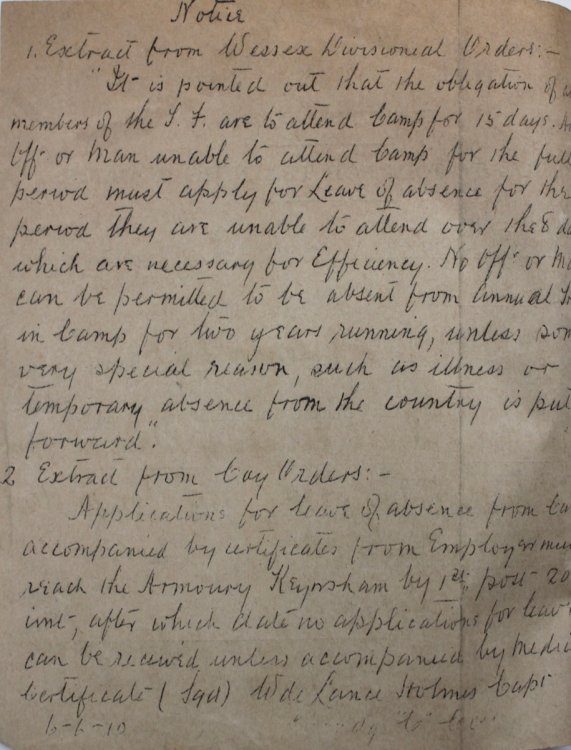 Notice
1. Extract from Wessex Divisional Orders:-
"It is pointed out that the obligation of
members of the T. F. are to attend Camp for 15 days.
Offr or Man unable to attend Camp for the full
period must apply for Leave of absence for the
period they are unable to attend over the 8
which are necessary for Efficiency. No Offr or
can be permitted to be absent from Annual
in Camp for two years running, unless
very special reason, such as illness or
temporary absence from the country is put
forward".
2 Extract from Coy Orders:-
Applications for leave of absence from
accompanied by certificates from Employer
reach the Armoury Keynsham by 1st post 20
inst, after which date no applications for
can be received unless accompanied by
Certificate (Sgd) W de Lance Holmes Capt
6-6-10